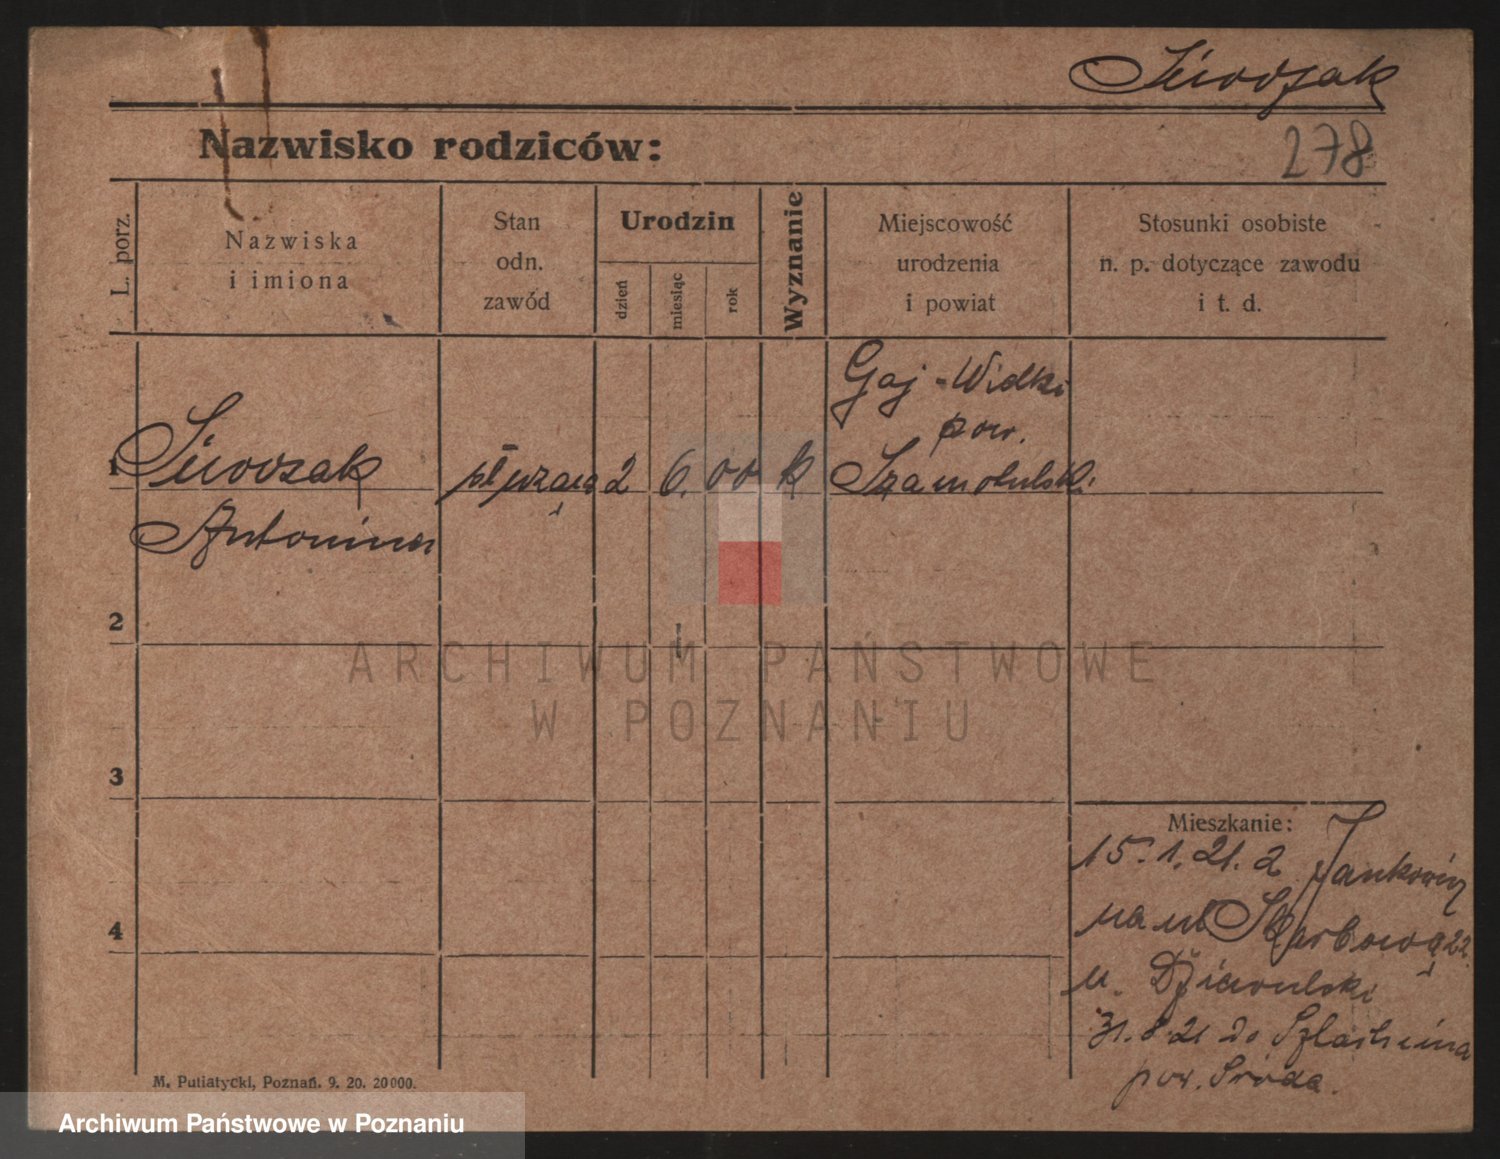 Siwczak
278
Nazwisko rodziców:
L. porz.
Nazwiska
i imiona
Stan
odn.
zawód
Urodzin
dzień
miesiąc
rok
Wyznanie
Miejscowość
urodzenia
i powiat
Stosunki osobiste
n. p. dotyczące zawodu
i t. d.
Gaj - Wielki
pow.
1 Siwczak służąca 2 6. 00 k Szamotulski
Antonina
2
3
4
Mieszkanie:
15. 1. 21. z
na ul Skarbową 22
u.
31. 8. 21 do Szlachcina
pow. Środa.
M. Putiatycki, Poznań. 9. 20. 20000.
ARCHIWUM PAŃSTWOWE
W POZNANIU
Archiwum Państwowe w Poznaniu